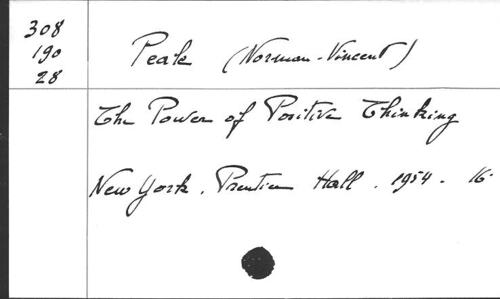 308
190
28
Peale (Norman-Vincent)
The Power of Positive Thinking
New York. Prentice Hall. 1954. 16.